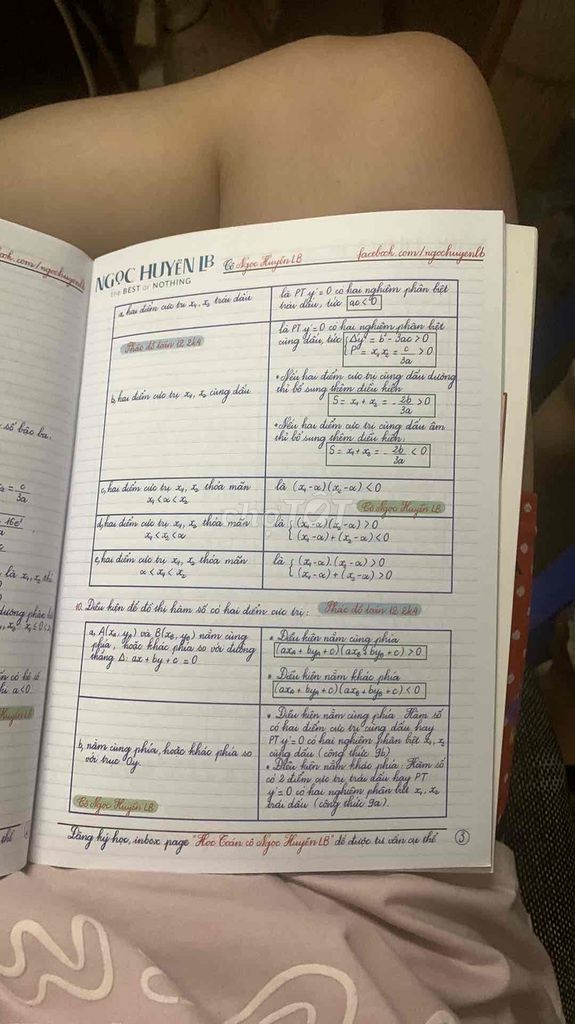 ook.com/ngochuyenlb
số bão ba.
= c/3a
là x₁, x₂ thì
a<0.
Huyền LB
thể
NGỌC HUYỀN LB
the BEST or NOTHING
Cô Ngọc Huyền LB
facebook.com/ngochuyenlb
a, hai điểm cực trị x₁, x₂ trái dấu
là PT y'=0 có hai nghiệm phân biệt
trái dấu, tức ac<0
Phác đồ toán 12 2k4
b, hai điểm cực trị x₁, x₂ cùng dấu
là PT y'=0 có hai nghiệm phân biệt
cùng dấu, tức { Δy' = b² - 3ac > 0
P = x₁x₂ = c/3a > 0
• Nếu hai điểm cực trị cùng dấu dương
thì bổ sung thêm điều kiện:
S = x₁ + x₂ = - 2b/3a > 0
• Nếu hai điểm cực trị cùng dấu âm
thì bổ sung thêm điều kiện:
S = x₁ + x₂ = - 2b/3a < 0
c, hai điểm cực trị x₁, x₂ thỏa mãn
x₁ < α < x₂
là (x₁-α)(x₂-α) < 0
Cô Ngọc Huyền LB
chợTỐT
d, hai điểm cực trị x₁, x₂ thỏa mãn
x₁ < x₂ < α
là { (x₁-α)(x₂-α) > 0
(x₁-α) + (x₂-α) < 0
e, hai điểm cực trị x₁, x₂ thỏa mãn
α < x₁ < x₂
là { (x₁-α).(x₂-α) > 0
(x₁-α) + (x₂-α) > 0
10. Điều kiện để đồ thị hàm số có hai điểm cực trị:
Phác đồ toán 12 2k4
a, A(xₐ, yₐ) và B(x_B, y_B) nằm cùng
phía, hoặc khác phía so với đường
thẳng Δ: ax + by + c = 0
• Điều kiện nằm cùng phía
(axₐ + byₐ + c)(ax_B + by_B + c) > 0
• Điều kiện nằm khác phía
(axₐ + byₐ + c)(ax_B + by_B + c) < 0
b, nằm cùng phía, hoặc khác phía so
với trục Oy.
Cô Ngọc Huyền LB
• Điều kiện nằm cùng phía: Hàm số
có hai điểm cực trị cùng dấu hay
PT y'=0 có hai nghiệm phân biệt x₁, x₂
cùng dấu (công thức 9b)
• Điều kiện nằm khác phía: Hàm số
có 2 điểm cực trị trái dấu hay PT
y'=0 có hai nghiệm phân biệt x₁, x₂
trái dấu (công thức 9a).
Đăng ký học, inbox page "Học Toán cô Ngọc Huyền LB" để được tư vấn cụ thể
3